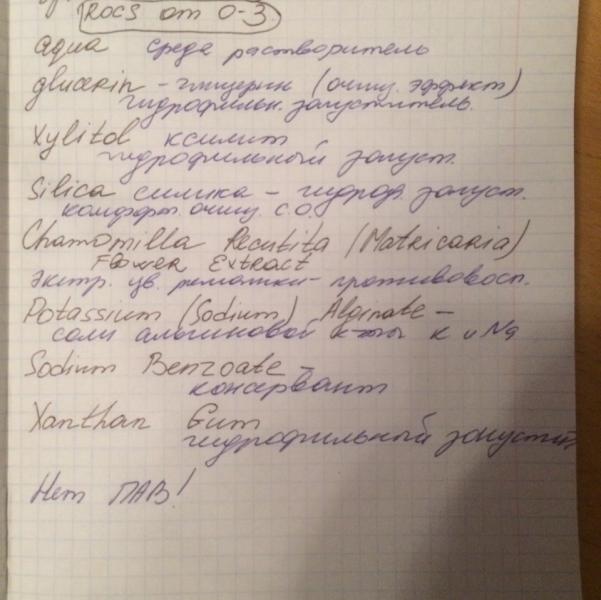 ROCS от 0-3
aqua среда растворитель
glucerin - глицерин (очищ. эффект)
гидрофильн. загуститель.
Xylitol ксилит
гидрофильный загуст.
Silica силика - гидроф. загуст.
комфорт. очищ. с.о.
Chamomilla Recutita (Matricaria)
Flower Extract
экстр. цв. ромашки - противовосп.
Potassium (Sodium) Alginate -
соли алгиновой к-ты К и Na
Sodium Benzoate -
консервант
Xanthan Gum
гидрофильный загустит
Нет ПАВ!